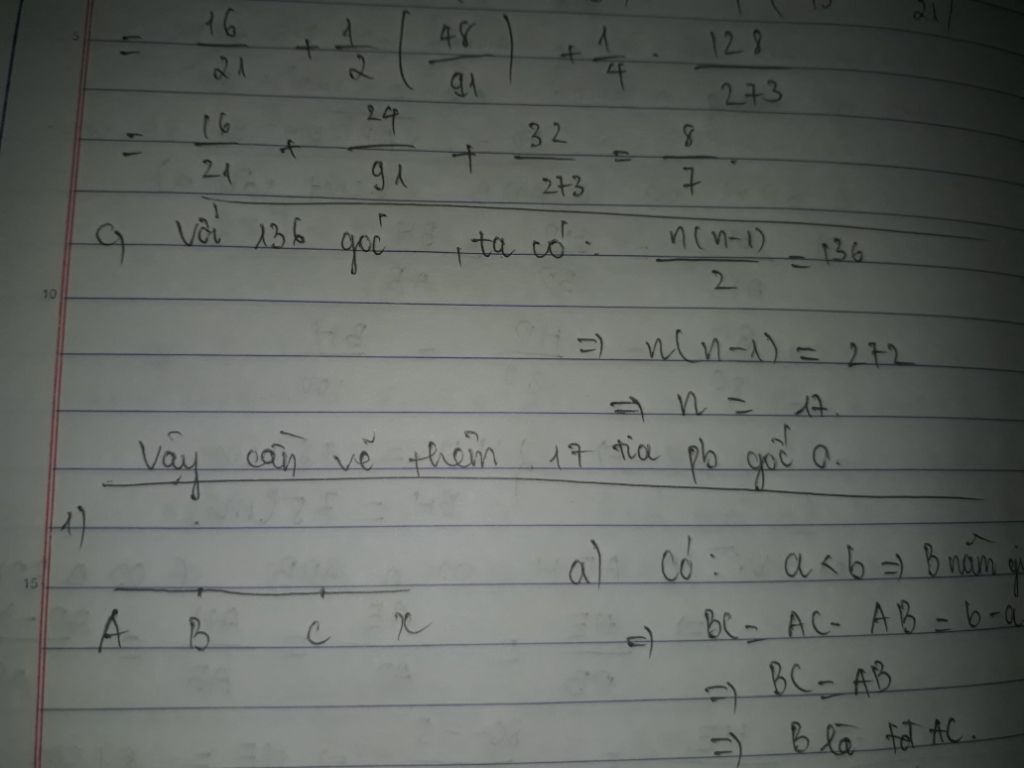 = 16/21 + 1/2 (48/91) + 1/4 . 128/273
= 16/21 + 24/91 + 32/273 = 8/7.
c) Với 136 góc, ta có: n(n-1)/2 = 136
=> n(n-1) = 272
=> n = 17.
Vậy cần vẽ thêm 17 tia pb gốc O.
1)
a) Có: a < b => B nằm gi
A B C x
=> BC = AC - AB = b - a
=> BC = AB
=> B là tđ AC.